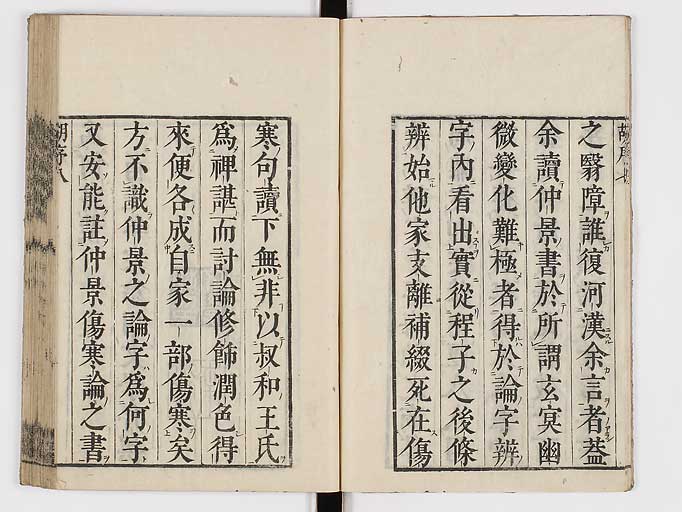 之翳障誰復河漢余言者葢
余讀仲景書於所謂玄冥幽
微變化難極者得於論字辨
字內看出實從程子之後條
辨始他家支離補綴死在傷
寒句讀下無非以叔和王氏
爲裨諶而討論修飾潤色得
來便各成自家一部傷寒矣
方不識仲景之論字爲何字
又安能註仲景傷寒論之書
胡序八